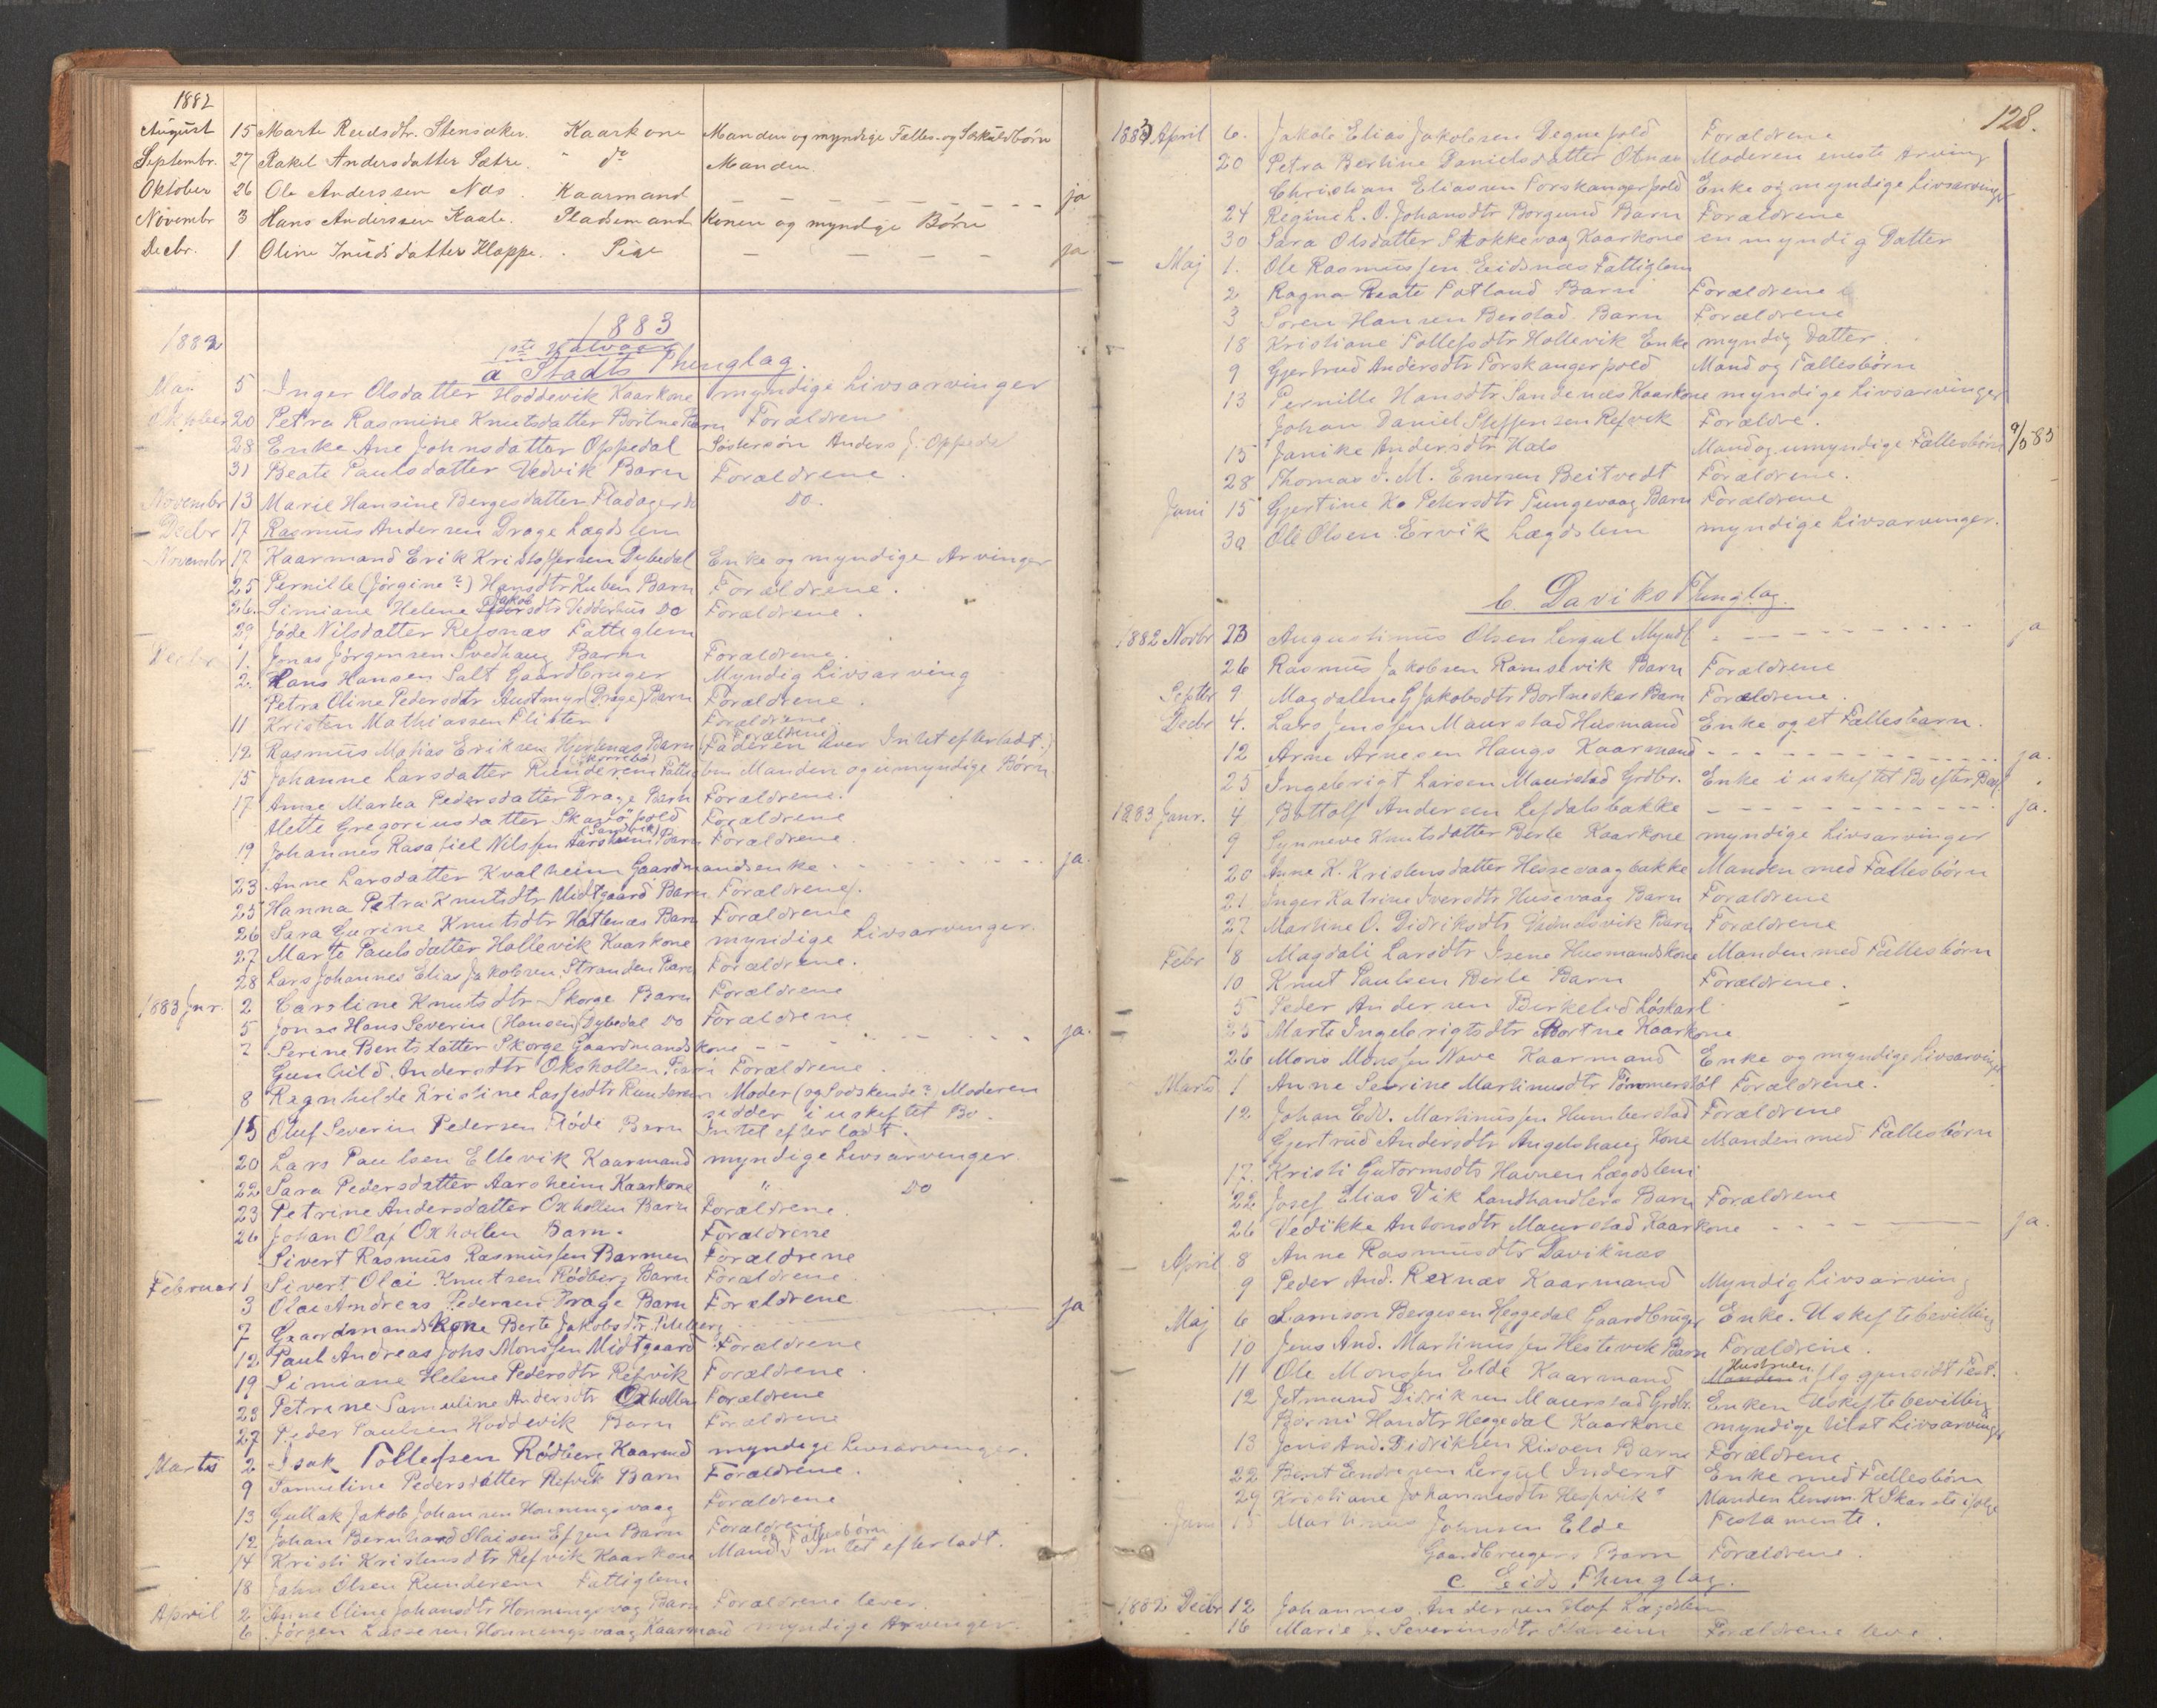 1882
August 15 Marte Reedsdtr. Stensaker. Kaarkone Manden og myndige Fælles- og Særkuldbørn
Septembr. 27 Rakel Andersdatter Sætre. " do Manden.
Oktober 26 Ole Anderssen Nos. Kaarmand - - - - - ja
Novembr 3 Hans Anderssen Kaale. Pladsemand Konen og myndige Børn
Decbr. 1 Oline Knudsdatter Kloppe. Pige - - - - - ja.
1883
1ste Halvaar
a Stadts Thinglag.
1882
Mai 5 Inger Olsdatter Hoddevik Kaarkone myndige Livsarvinger
Oktober 20 Petra Rasmine Knutsdatter Bortne Barn Forældrene
28 Enke Ane Johnsdatter Oppedal Søstersøn Anders J. Oppedal
31 Beate Paulsdatter Vedvik Barn Forældrene.
Novembr 13 Marie Hansine Bergesdatter Fladager Do.
- Decbr 17 Rasmus Andersen Drage Lægdslem
Novembr 17 Kaarmand Erik Kristoffersen Dybedal Enke og myndige Arvinger
25 Pernille (Jørgine?) Hansdtr Kuben Barn Forældrene.
26. Simiane Helene Jakobsdtr Vedderhus Do Forældrene.
29 Jøde Nilsdatter Refsnæs Fattiglem
Decbr 1. Jonas Jørgensen Svedhaug Barn Forældrene.
2. Hans Hansen Salt Gaardbruger Myndig Livsarving
Petra Oline Pedersdtr Austmyr (Drage) Barn Forældrene.
11 Kristen Mathiassen Flister Forældrene.
12 Rasmus Matias Eriksen Hjertenæs Barn Forældrene (Faderen lever Intet efterladt.)
15 Johanne Larsdatter Runderem Manden og umyndige Børn
17 Anne Marta Pedersdatter Drage Barn Forældrene.
Alette Gregoriusdatter Skavøpold Forældrene
19 Johannes Rasafiel Nilssen Aarsheim (Sandvik) Barn Forældrene
23 Anne Larsdatter Kvalheim Gaardmandsenke - - - - ja.
25 Hanna Petra Knutsdtr Midtgaard Barn Forældrene.
26 Sara Gurine Knutsdtr Hatlenæs Barn Forældrene
27 Marte Paulsdatter Hallevik Kaarkone myndige Livsarvinger.
28 Lars Johannes Elias Jakobsen Stranden Barn Forældrene.
1883 Jnr. 2 Caroline Knutsdtr Skorge Barn Forældrene
5 Jonas Hans Severin (Hansen) Dybedal Do Forældrene
7 Serine Bentsdatter Skorge Gaardmandskone - - - - ja.
Gunhild Andersdtr Oksholten Barn Forældrene.
8 Ragnhilde Kristine Lassesdtr Runderem Moder (og Sødskende?) Moderen
sidder i uskiftet Bo.
15 Oluf Severin Pedersen Fløde Barn Intet efterladt.
20 Lars Paulsen Ellevik Kaarmand myndige Livsarvinger.
22 Sara Pedersdatter Aarsheim Kaarkone " Do
23 Petrine Andersdatter Oxholten Barn Forældrene.
26 Johan Olaf Oxholten Barn. Forældrene
Sivert Rasmus Rasmussen Barmen Forældrene
Februar 1 Sivert Olai Knutsen Rødberg Barn Forældrene
3 Olai Andreas Pedersen Drage Barn Forældrene
7 Gaardmandskone Berte Jakobsdtr ja
12 Paul Andreas Johs Monssen Midtgaard Forældrene
19 Simiane Helene Pedersdtr Refvik Forældrene
23 Petrine Samuline Andersdtr Oxholten Forældrene
27 Peder Paulsen Hoddevik Barn Forældrene
Marts 2 Isak Tollefsen Rødberg Kaarmd myndige Livsarvinger.
9 Samuline Pedersdatter Refvik Barn Forældrene.
13 Gullak Jakob Johansen Honningsvaag Forældrene
12 Johan Bernhard Olaisen Barn Forældrene
14 Kristi Kristensdtr Refvik Kaarkone Mand & Fællesbørn Intet efterladt.
18 John Olsen Runderem Fattiglem
April 2 Anne Oline Johansdtr Honningsvag Barn Forældrene lever.
6 Jørgen Lassesen Honningsvaag Kaarmand myndige Arvinger.
128.
1883 April 6. Jakob Elias Jakobsen Degnepold Forældrene
20 Petra Bertine Danielsdatter Otnæs Moderen eneste Arving
Christian Eliassen Torskangerpold Enke og myndige Livsarvinger
24 Regine L. O. Johansdtr Borgund Barn Forældrene
30 Sara Olsdatter Stokkevaag Kaarkone en myndig Datter
- Maj 1. Ole Rasmussen Eidsnæs Fattiglem
2 Ragna Beate Fatland Barn Forældrene
3 Søren Hansen Berstad Barn Forældrene
18 Kristiane Tollefsdtr Hallevik Enke myndig Datter
9 Gjertrud Andersdtr Torskangerpold Mand og Fællesbørn
13 Pernille Hansdtr Sandenæs Kaarkone myndige Livsarvinger
Johan Daniel Steffensen Refvik Forældre.
15 Janike Andersdtr Hals Mand og umyndige Fællesbørn 9/5 83
28 Thomas J. M. Enersen Beitvedt Forældrene.
Juni 15 Gjertine K. Petersdtr Tungevaag Barn Forældrene
30 Ole Olsen Ervik Lægdslem myndige Livsarvinger.
b. Daviks Thinglag.
1882 Novbr 23 Augustinus Olsen Lergul Myndl - - - - ja
26 Rasmus Jakobsen Ramsevik Barn Forældrene
Septbr 9 Magdalene G Jakobsdtr Bortneskar Barn Forældrene.
Decbr 4. Lars Jenssen Maurstad Husmand Enke og et Fællesbarn.
12 Arne Arnesen Haugs Kaarmand - - - - ja.
23 Ingebrigt Larsen Maurstad Grdbr. Enke i uskiftet Bo efter Bev
1883 Janr. 4 Bottolf Andersen Lefdalsbakke - - - - ja.
9 Synneve Knutsdatter Berle Kaarkone myndige Livsarvinger
20 Anne K. Kristensdatter Hessevaagbakke Manden med Fællesbørn
21 Inger Katrine Iversdtr Husevaag Barn Forældrene
27 Martine O. Didriksdtr Barn Forældrene
Febr 8 Magdali Larsdtr Isene Husmandskone Manden med Fællesbørn
10 Knut Paulsen Berle Barn Forældrene.
- 5 Peder Andersen Birkelid Løskarl
- 25 Marte Ingebrigtsdtr Bortne Kaarkone
26 Mons Monssen Nave Kaarmand Enke og myndige Livsarvinger
Marts 1 Anne Serine Martinusdtr Tømmerstøl Forældrene.
12 Johan Edv. Martinussen Humberstad Forældrene
Gjertrud Andersdtr Angelshaug Kone Manden med Fællesbørn
17. Kristi Gutormsdtr Havnen Lægdslem
22 Josef Elias Vik Landhandlers Barn Forældrene
26 Vedikke Antonsdtr Maurstad Kaarkone - - - - ja.
April 8 Anne Rasmusdtr Daviknæs
9 Peder And. Rexnæs Kaarmand Myndig Livsarving
Maj 6 Lamson Bergesen Heggedal Gaardbruger Enke. Uskiftebevilling
10 Jens And. Martinussen Hestevik Barn Forældrene.
11 Ole Monssen Elde Kaarmand Hustruen iflg gjensidt Test.
12 Jetmund Didriksen Maurstad Grdbr. Enken Uskiftebevilling
Børni Handtr Heggedal Kaarkone myndige Livsarvinger
13 Jens And. Didriksen Risøen Barn Forældrene
22 Bent Endresen Lergul Inderst Enke med Fællesbørn
29 Kristiane Johannesdtr Hessvik Manden Lensm. K Skarste ifølge
Testamente.
Juni 15 Martinus Johnsen Elde
Gaardbrugers Barn Forældrene.
c Eids Thinglag.
- 1882 Decbr 12 Johannes Andersen Hof Lægdslem
16 Marie Severinsdtr Barn Forældrene leve.